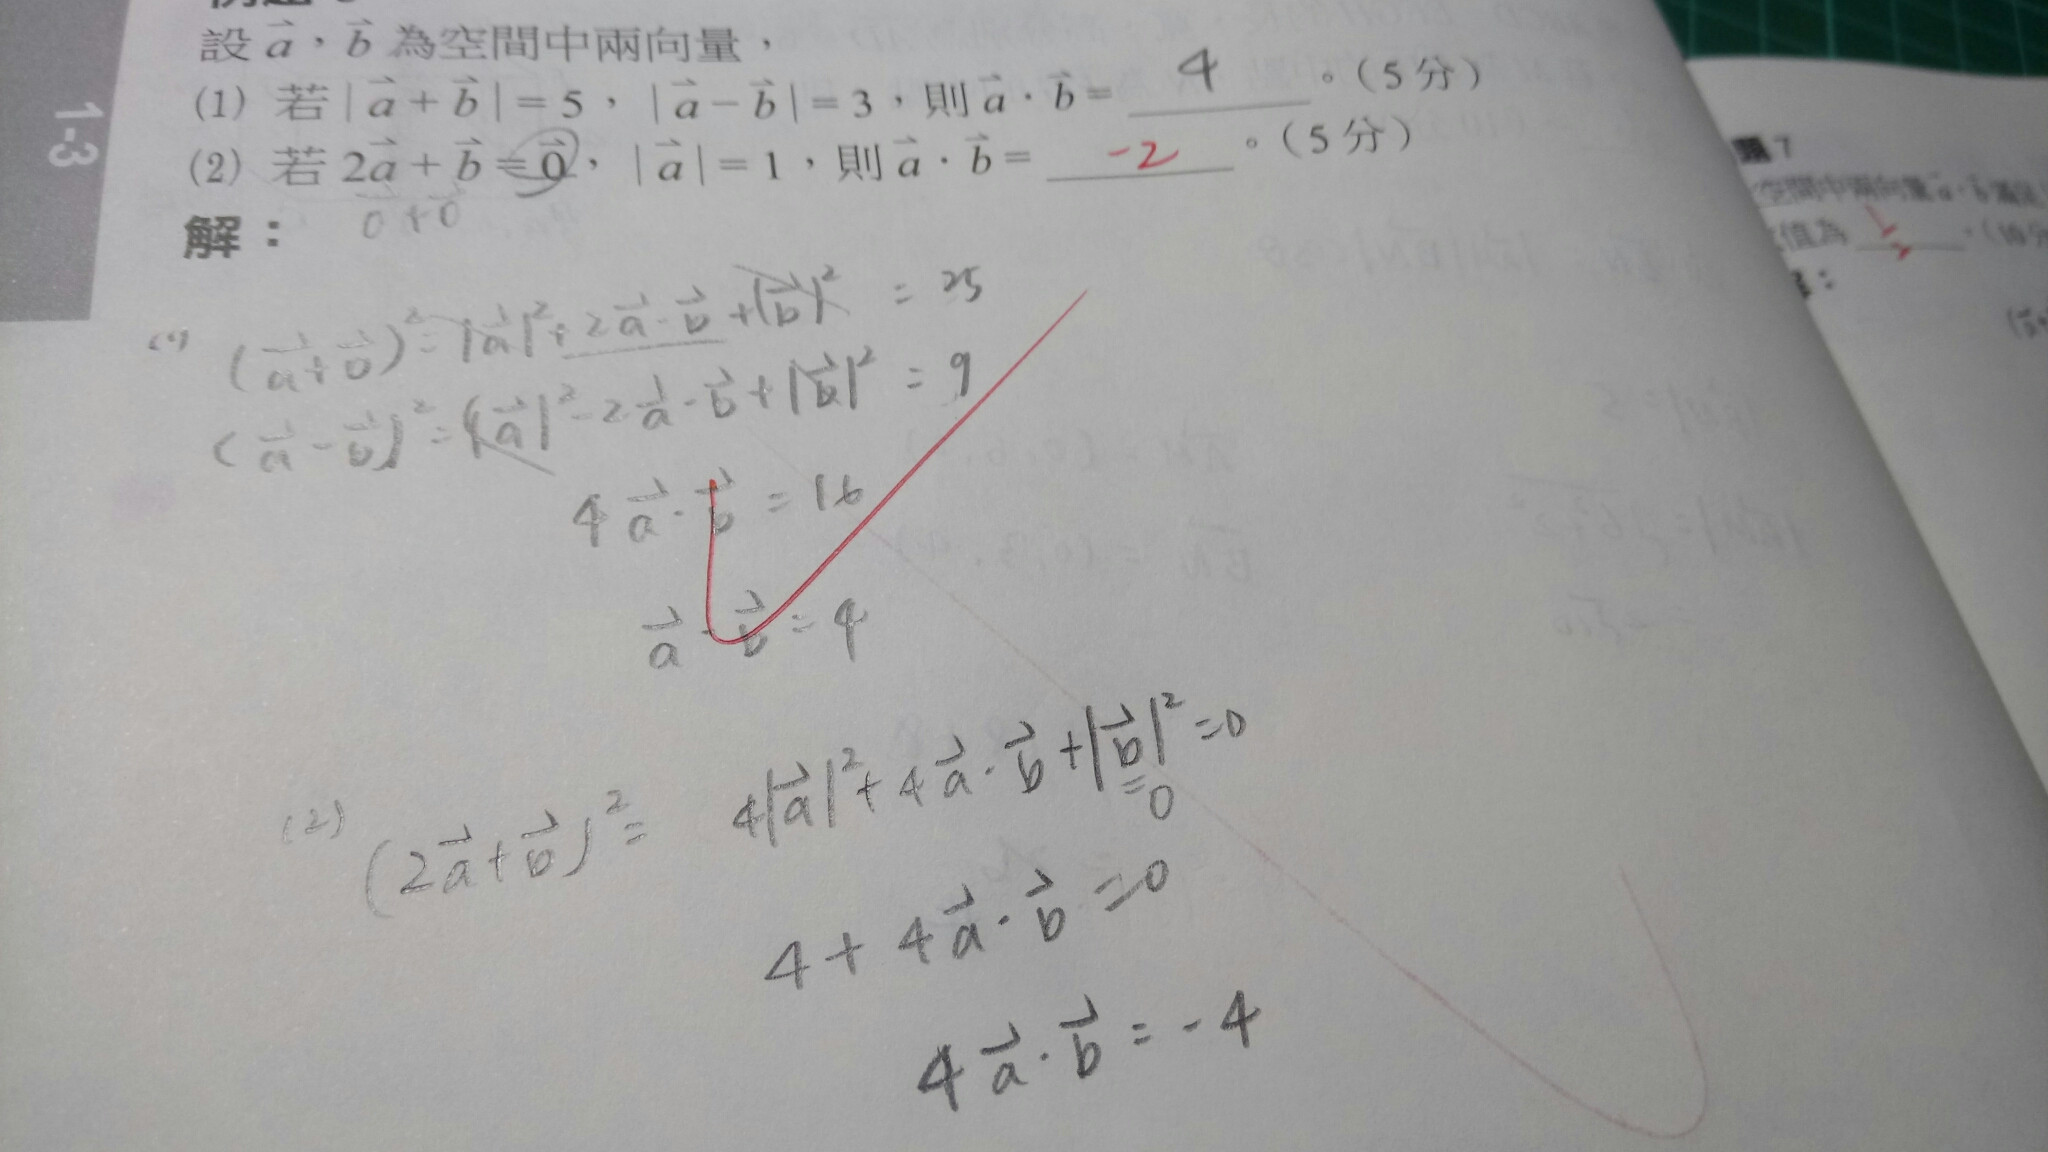 1-3
設 a⃗,b⃗ 為空間中兩向量,
(1) 若 |a⃗+b⃗|=5,|a⃗-b⃗|=3,則 a⃗·b⃗= 4 。(5分)
(2) 若 2a⃗+b⃗=0⃗,|a⃗|=1,則 a⃗·b⃗= -2 。(5分)
0⃗+0⃗
解:
(1) (a⃗+b⃗)²=|a⃗|²+2a⃗·b⃗+|b⃗|² =25
(a⃗-b⃗)²=|a⃗|²-2a⃗·b⃗+|b⃗|² =9
4a⃗·b⃗=16
a⃗·b⃗=4
(2) (2a⃗+b⃗)²= 4|a⃗|²+4a⃗·b⃗+|b⃗|²=0
=0
4+4a⃗·b⃗=0
4a⃗·b⃗=-4
題7
空間中兩向量 a⃗,b⃗ 滿足
值為